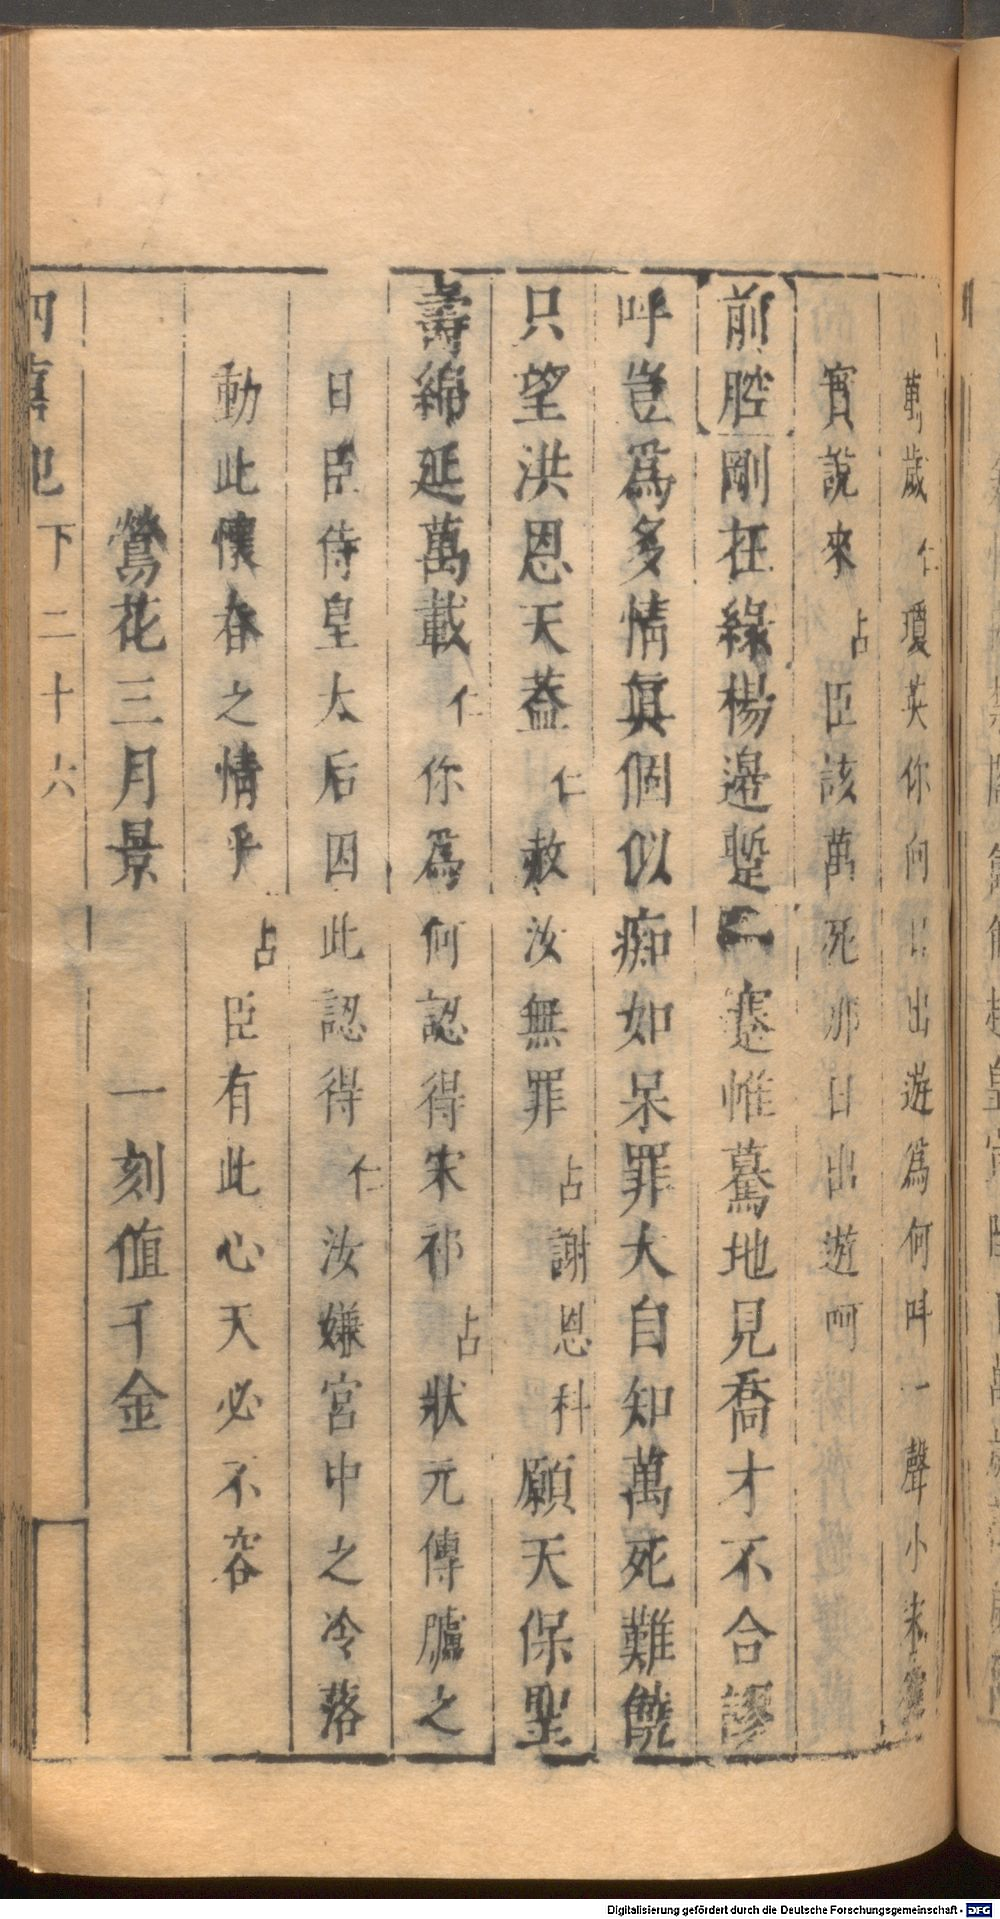 萬歲仁瓊英你向日出遊爲何呌一聲小宋
實說來占臣該萬死那日出遊呵
前腔剛在綠楊邊蹔褰惟驀地見喬才不合謬
呼豈爲多情眞個似痴如呆罪大自知萬死難饒
只望洪恩天葢仁赦汝無罪占謝恩科願天保聖
壽綿延萬載仁你爲何認得宋祁占狀元傳臚之
日臣侍皇太后因此認得仁汝嫌宮中之冷落
動此懷春之情乎占臣有此心天必不容
鶯花三月景 一刻值千金
四喜記 下二十六
Digitalisierung gefördert durch die Deutsche Forschungsgemeinschaft - DFG